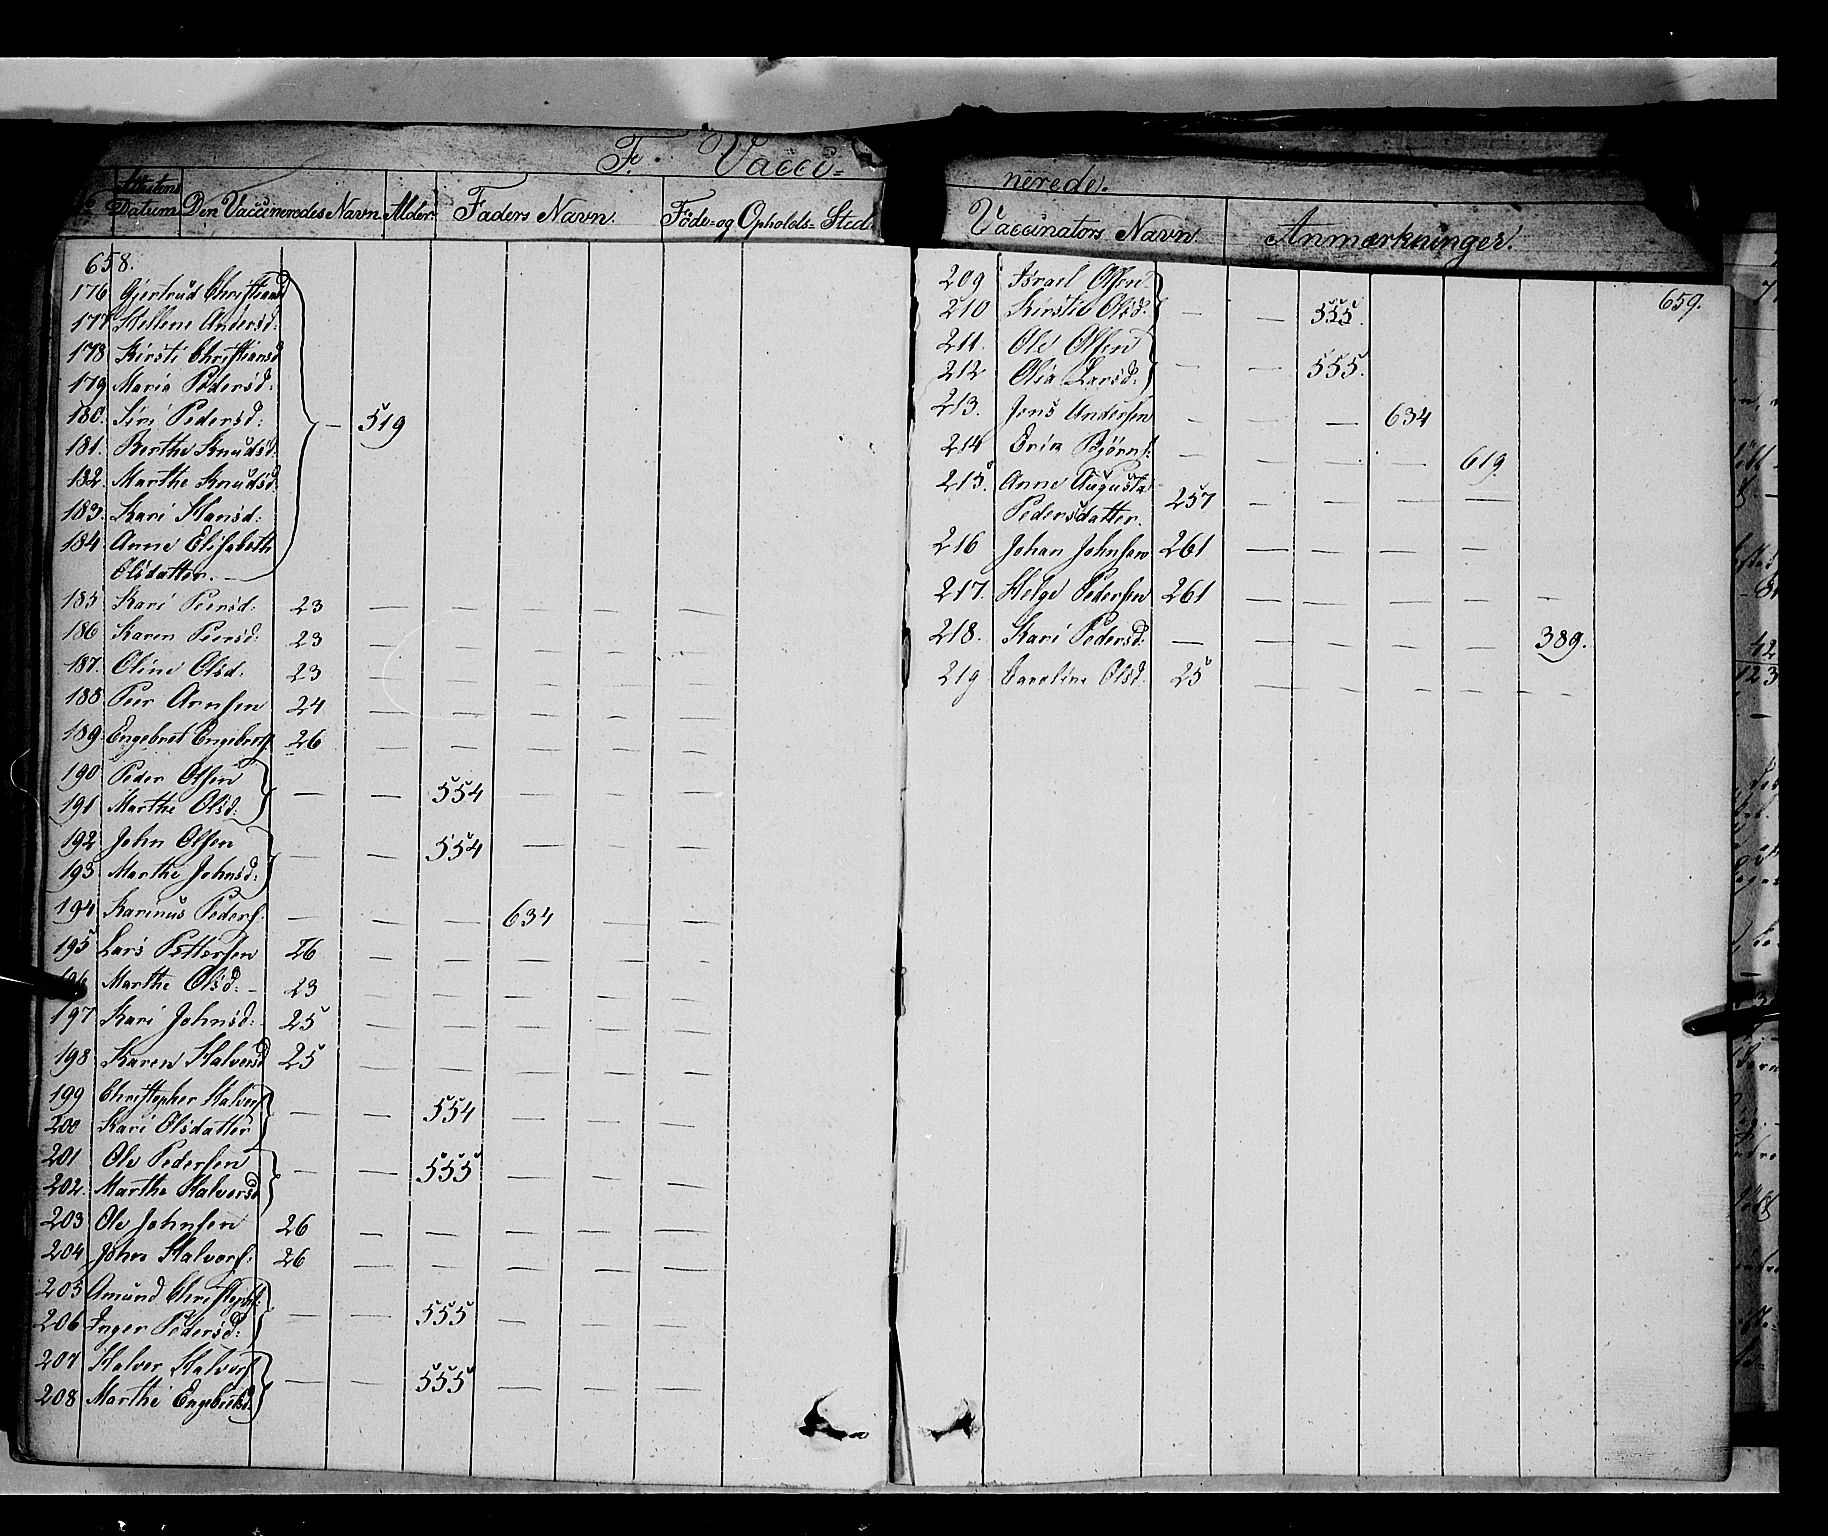 F. Vacci-
Attestens
Datum
Den Vaccineredes Navn
Alder
Faders Navn.
Föde- og Opholds-Sted
658.
176 Gjertrud Christiansd
177 Hellene Andersd:
178 Kirsti Christiansd
179 Maria Pedersd:
180. Siri Pedersd: — 519
181. Berthe Knudsd:
182. Marthe Knudsd:
183. Kari Hansd:
184. Anne Elisabeth
Olsdatter. —
185 Kari Peersd: 23 — — — — — —
186 Karen Peersd: 23 — — — — — —
187. Oline Olsd. 23 — — — — — —
188 Peer Arnesen 24 — — — — — —
189. Engebret Engebretf 26 — — — — — —
190 Peder Olsen
— — 554 — — — —
191 Marthe Olsd:
192 John Olsen
— — 554 — — — —
193. Marthe Johnsd:
194 Karinus Pedersf. — — — 634 — —
195 Lars Pettersen 26 — — — — — —
196 Marthe Olsd: — 23 — — — — — —
197 Kari Johnsd: 25 — — — — — —
198 Karen Halversd 25 — — — — — —
199 Christopher Halversf
— — 554 — — —
200 Kari Olsdatter
201 Ole Pedersen
— — 555 — — —
202. Marthe Halversd
203 Ole Johnsen 26 — — — — —
204 John Halversf: 26 — — — — —
205 Amund Christophf:
— — 555 — — —
206 Inger Pedersd:
207 Halver Halversf
— — 555 — — —
208 Marthe Engebretsd:
nerede.
Vaccinators Navn
Anmærkninger.
659.
209 Israel Olsen
210 Kirsti Olsd: — — 555.
211. Ole Olsen
212 Olia Larsd: — — 555.
213. Jens Andersen — — — 634
214 Erik Björnsf: — — — — 619.
215. Anne Augusta
Pedersdatter. 257 — — — —
216 Johan Johnsen 261 — — — —
217. Helge Pedersen 261 — — — — —
218. Kari Pedersd: — — — — — 389.
219 Caroline Olsd. 25 — — — — — —
42
123